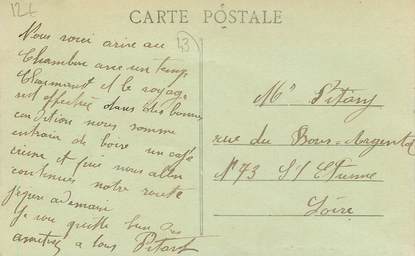 12€
CARTE POSTALE
43
Nous voici arivé au
Chambon avec un temps
Charmant et le voyage
est effectué dans des bonnes
condition nous somme
entrain de boire un café
creme et puis nous allon
continuer notre route
jusqu'a demain
Je vous quitte bien des
amitiés a tous Pitary
Mr Pitary
rue du Bois-Argental
N° 73 St Etienne
Loire